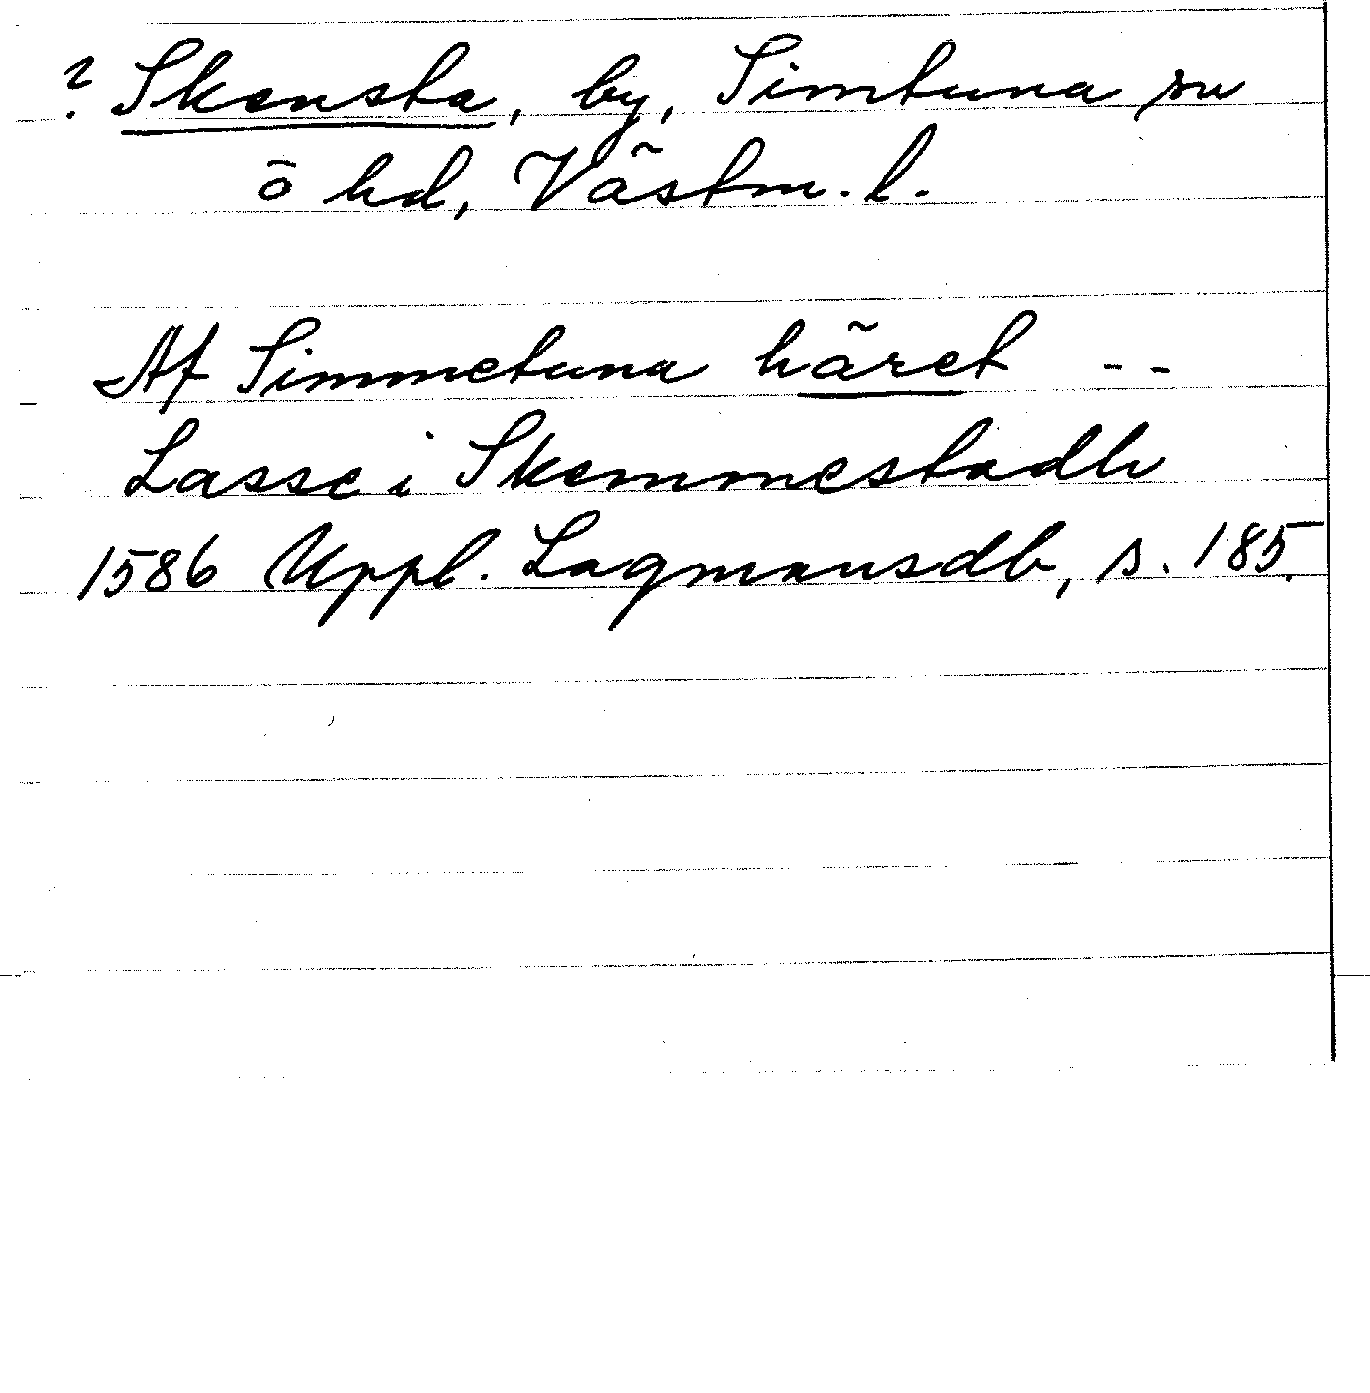 ? Skensta, by, Simtuna sn
ö hd, Västm. l.
Af Simmetuna häret --
Lasse i Skemmestadh
1586 Uppl. Lagmansdb, s. 185.